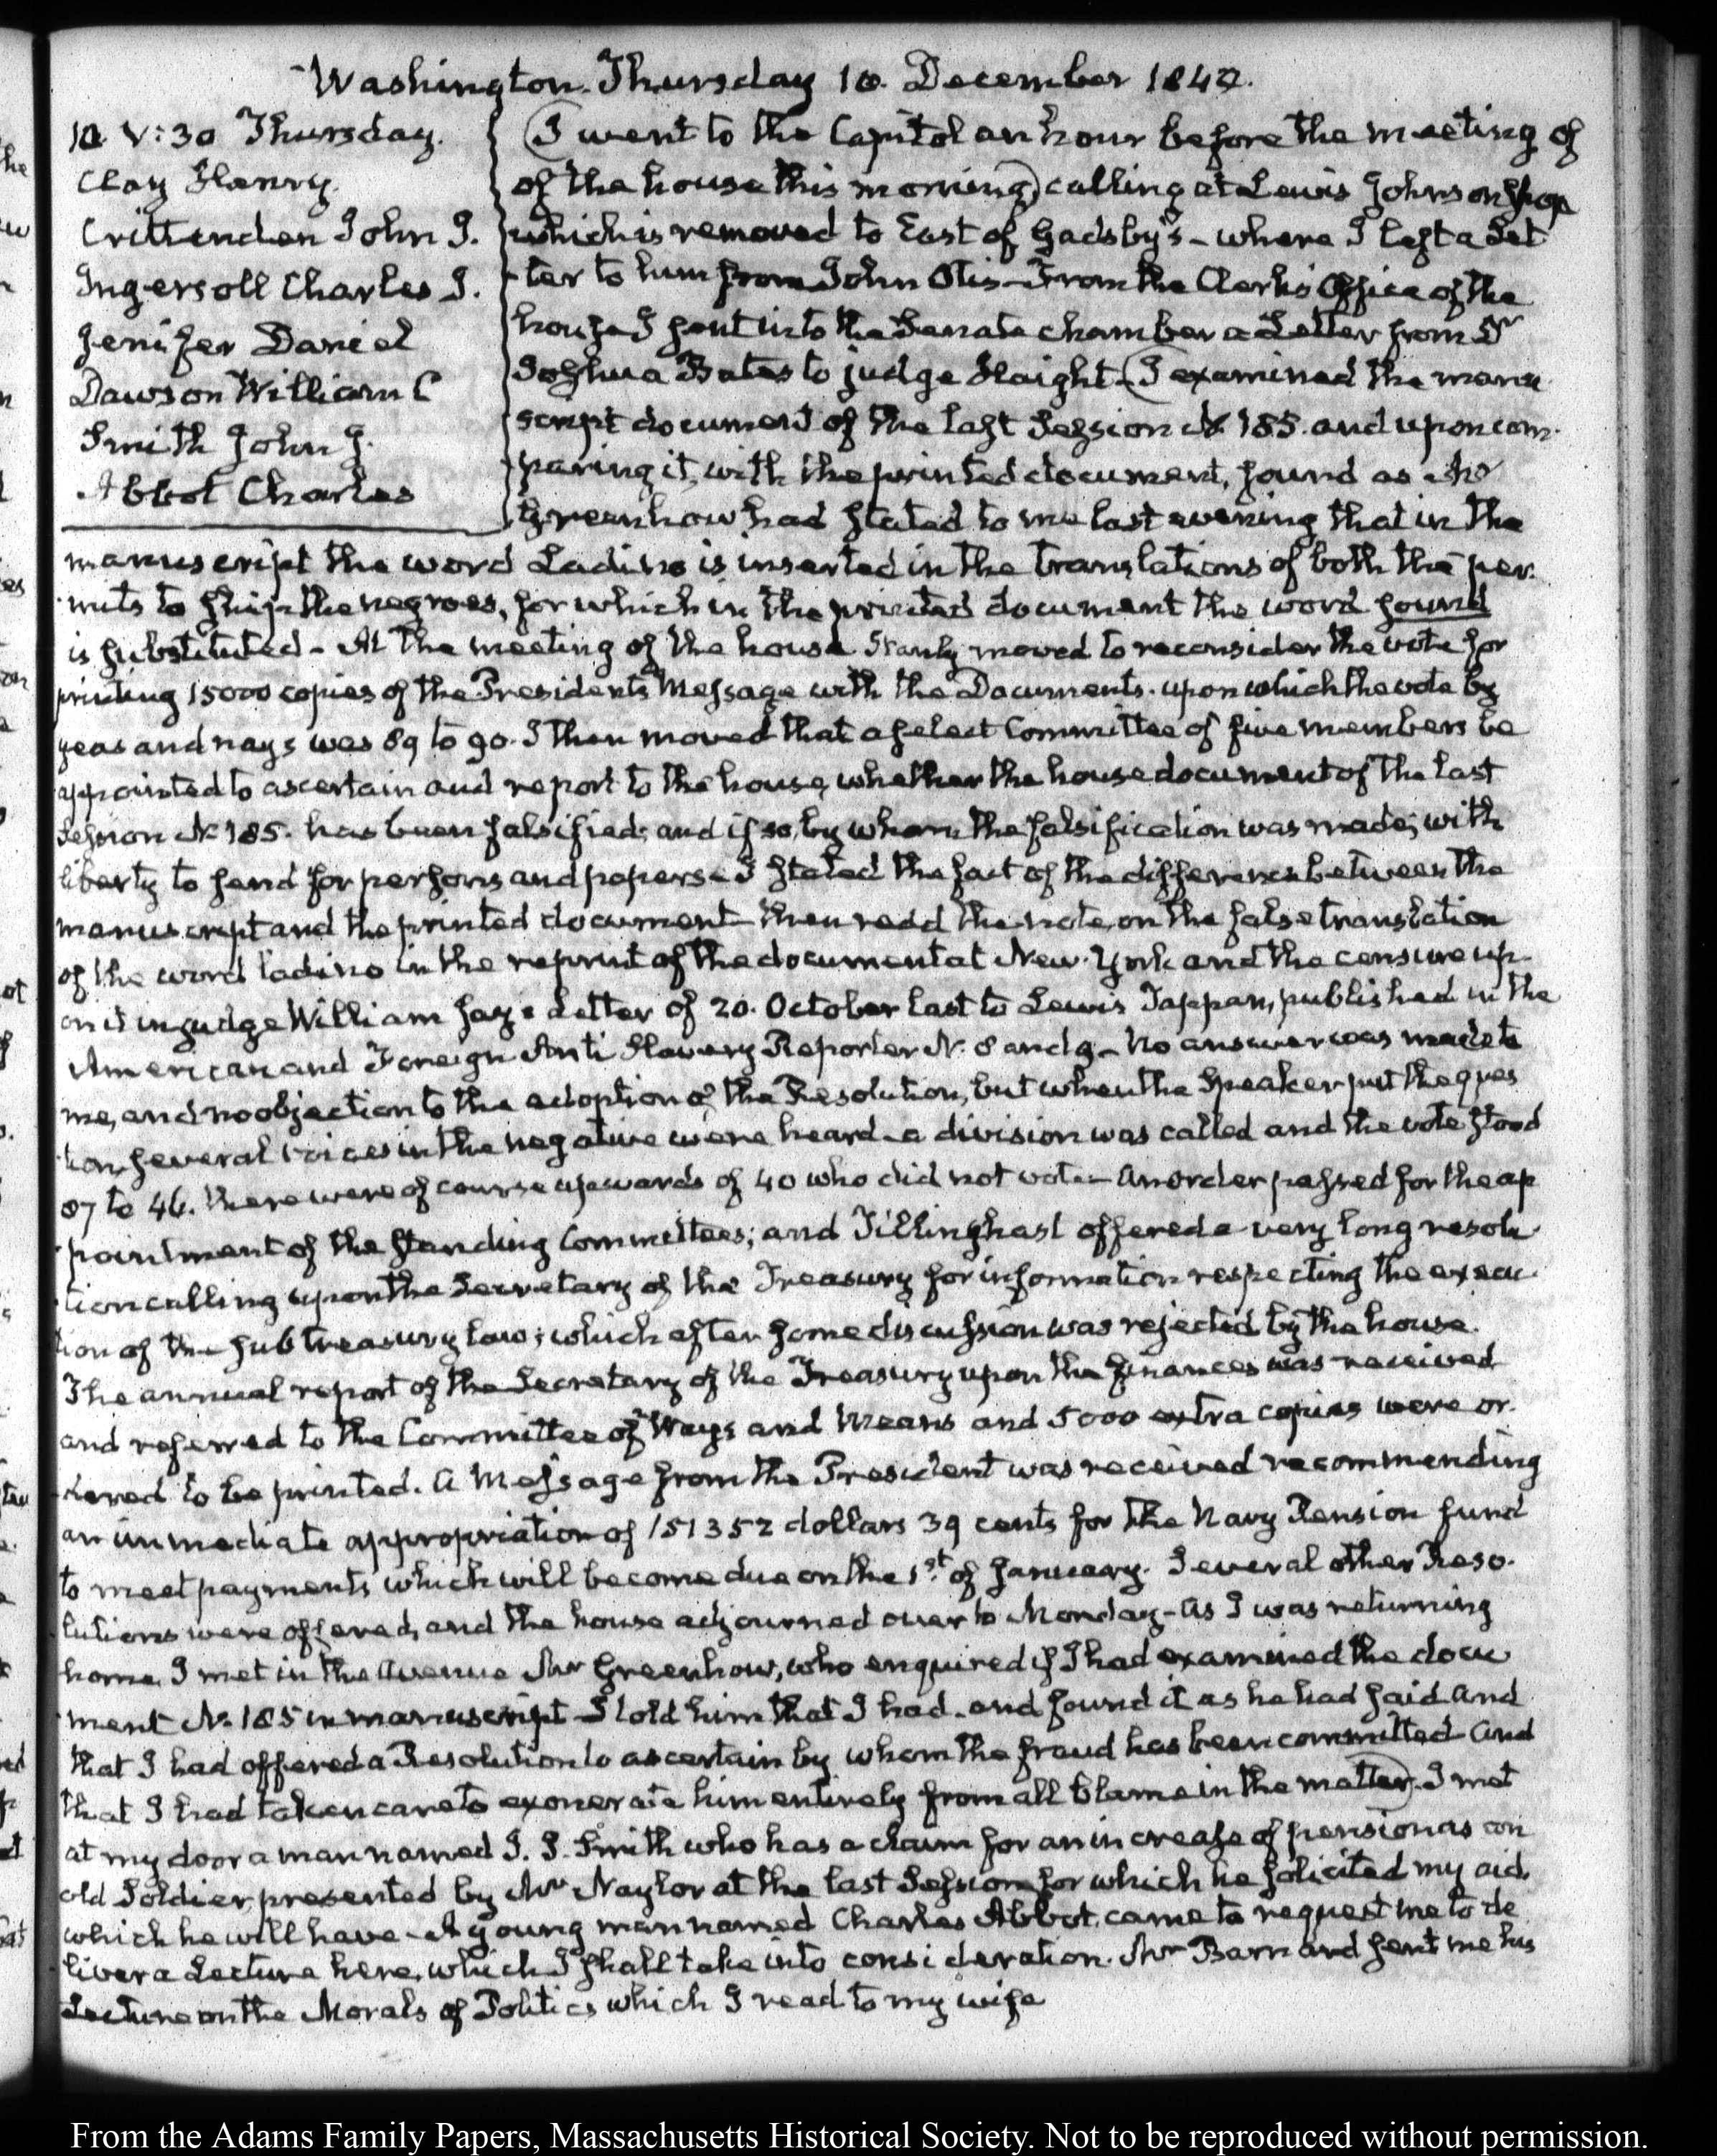 Washington. Thursday 10. December 1840.
10. V:30 Thursday.
Clay Henry.
Crittenden John J.
Ingersoll Charles J.
Jenifer Daniel
Dawson William C
Smith John J.
Abbot Charles
I went to the Capitol an hour before the meeting of
of the house this morning) calling at Lewis Johnson's shop
which is removed to East of Gadsby's – where I left a Let
ter to him from John Otis – From the Clerk's Office of the
house I sent into the Senate chamber a Letter from Dr
Joshua Bates to judge Haight – (I examined the manu
script document of the last Session N. 185. and upon com-
paring it, with the printed document, found as Mr
Greenhow had stated to me last evening that in the
manuscript the word Ladino is inserted in the translations of both the per-
mits to ship the negroes, for which in the printed document the word sound
is substituted – At the meeting of the house Stanly moved to reconsider the vote for
printing 15000 copies of the Presidents Message with the Documents. upon which the vote by
yeas and nays was 89 to 90. I then moved that a select Committee of five members be
appointed to ascertain and report to the house, whether the house document of the last
Session N. 185. has been falsified; and if so, by whom the falsification was made; with
liberty to send for persons and papers – I stated the fact of the difference between the
manuscript and the printed document – then read the note, on the false translation
of the word ladino in the reprint of the document at New-York and the censure up-
on it in judge William Jay's Letter of 20. October last to Lewis Tappan, published in the
American and Foreign Anti Slavery Reporter N. 8 and 9 – No answer was made to
me, and no objection to the adoption of the Resolution, but when the Speaker put the ques
tion, several voices in the negative were heard – a division was called and the vote stood
87 to 46. there were of course upwards of 40 who did not vote – An order passed for the ap
pointment of the standing Committees; and Tillinghast offered a very long resolu
tion calling upon the Secretary of the Treasury for information respecting the execu-
tion of the sub treasury law; which after some discussion was rejected by the house.
The annual report of the Secretary of the Treasury upon the finances was received
and referred to the Committee of Ways and Means and 5000 extra copies were or-
dered to be printed. A Message from the President was received recommending
an immediate appropriation of 151352 dollars 39 cents for the Navy Pension fund
to meet payments which will become due on the 1st of January. Several other Reso-
lutions were offered, and the house adjourned over to Monday – As I was returning
home, I met in the Avenue Mr Greenhow, who enquired if I had examined the docu
ment N. 185 in manuscript – I told him that I had – and found it as he had said and
that I had offered a Resolution to ascertain by whom the fraud has been committed and
that I had taken care to exonerate him entirely from all blame in the matter) I met
at my door a man named J. J. Smith who has a claim for an increase of pension as an
old Soldier, presented by Mr Naylor at the last Session, for which he solicited my aid,
which he will have – A young man named Charles Abbot, came to request me to de
liver a Lecture here, which I shall take into consideration. Mr Barnard sent me his
Lecture on the Morals of Politics which I read to my wife
From the Adams Family Papers, Massachusetts Historical Society. Not to be reproduced without permission.